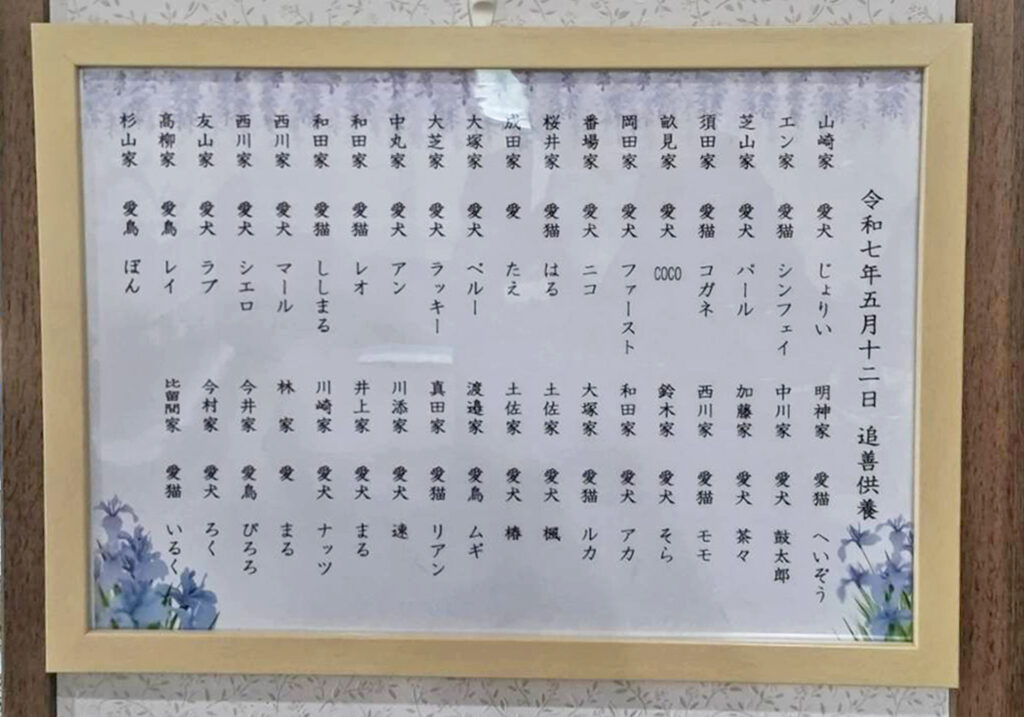 令和七年五月十二日 追善供養
山崎家 愛犬 じょりい
エン家 愛猫 シンフェイ
芝山家 愛犬 パール
須田家 愛猫 コガネ
畝見家 愛犬 COCO
岡田家 愛犬 ファースト
番場家 愛犬 ニコ
桜井家 愛猫 はる
成田家 愛 たえ
大塚家 愛犬 ベルー
大芝家 愛犬 ラッキー
中丸家 愛犬 アン
和田家 愛猫 レオ
和田家 愛猫 ししまる
西川家 愛犬 マール
西川家 愛犬 シエロ
友山家 愛犬 ラブ
高柳家 愛鳥 レイ
杉山家 愛鳥 ぽん
明神家 愛猫 へいぞう
中川家 愛犬 鼓太郎
加藤家 愛犬 茶々
西川家 愛猫 モモ
鈴木家 愛犬 そら
和田家 愛犬 アカ
大塚家 愛猫 ルカ
土佐家 愛犬 楓
土佐家 愛犬 椿
渡邉家 愛鳥 ムギ
真田家 愛猫 リアン
川添家 愛犬 速
井上家 愛犬 まる
川崎家 愛犬 ナッツ
林 家 愛 まる
今井家 愛鳥 ぴろろ
今村家 愛犬 ろく
比留間家 愛猫 いるく